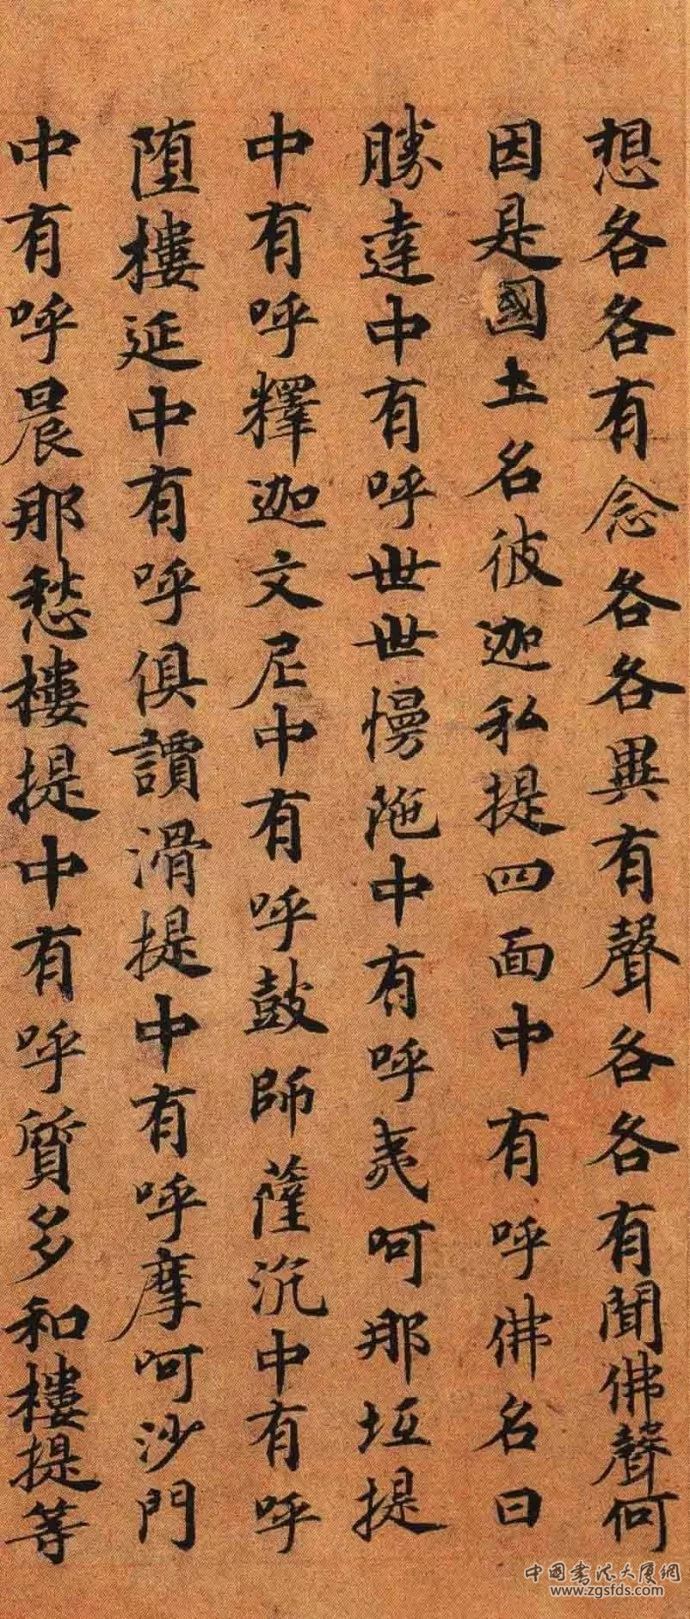 想各各有念各各異有聲各各有聞佛聲何
因是國土名彼迦私提四面中有呼佛名曰
勝達中有呼世世慢陁中有呼夷呵那坘提
中有呼釋迦文尼中有呼鼓師薩沉中有呼
墮樓延中有呼俱讀滑提中有呼摩呵沙門
中有呼晨那愁樓提中有呼質多和樓提等
中国书法大厦网
www.zgsfds.com